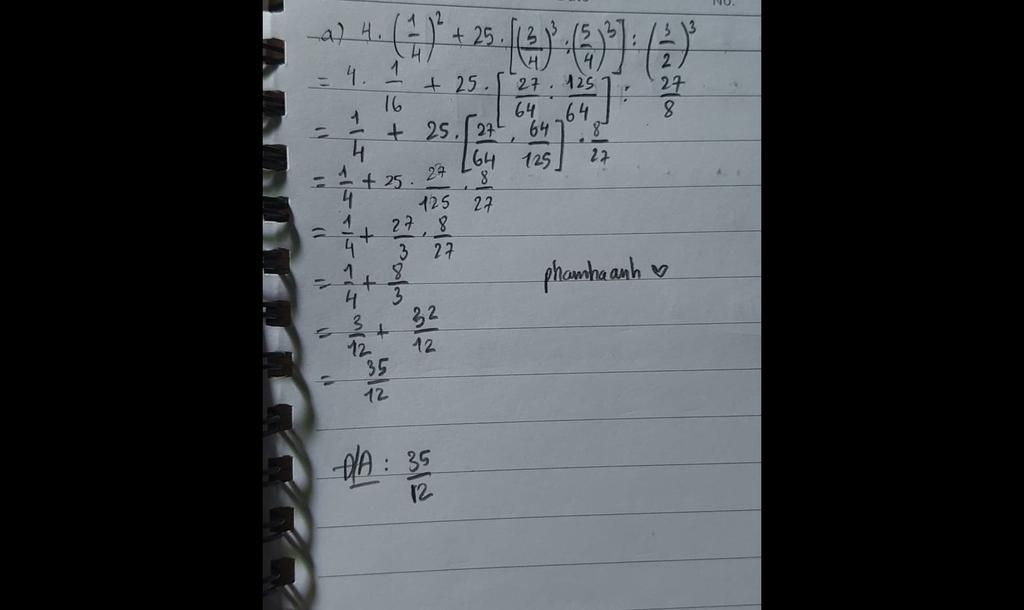 No.
a) 4 . (1/4)² + 25 . [(3/4)³ : (5/4)³] : (3/2)³
= 4 . 1/16 + 25 . [27/64 : 125/64] : 27/8
= 1/4 + 25 . [27/64 . 64/125] . 8/27
= 1/4 + 25 . 27/125 . 8/27
= 1/4 + 27/3 . 8/27
= 1/4 + 8/3
phamhaanh ♡
= 3/12 + 32/12
= 35/12
Đ/A : 35/12